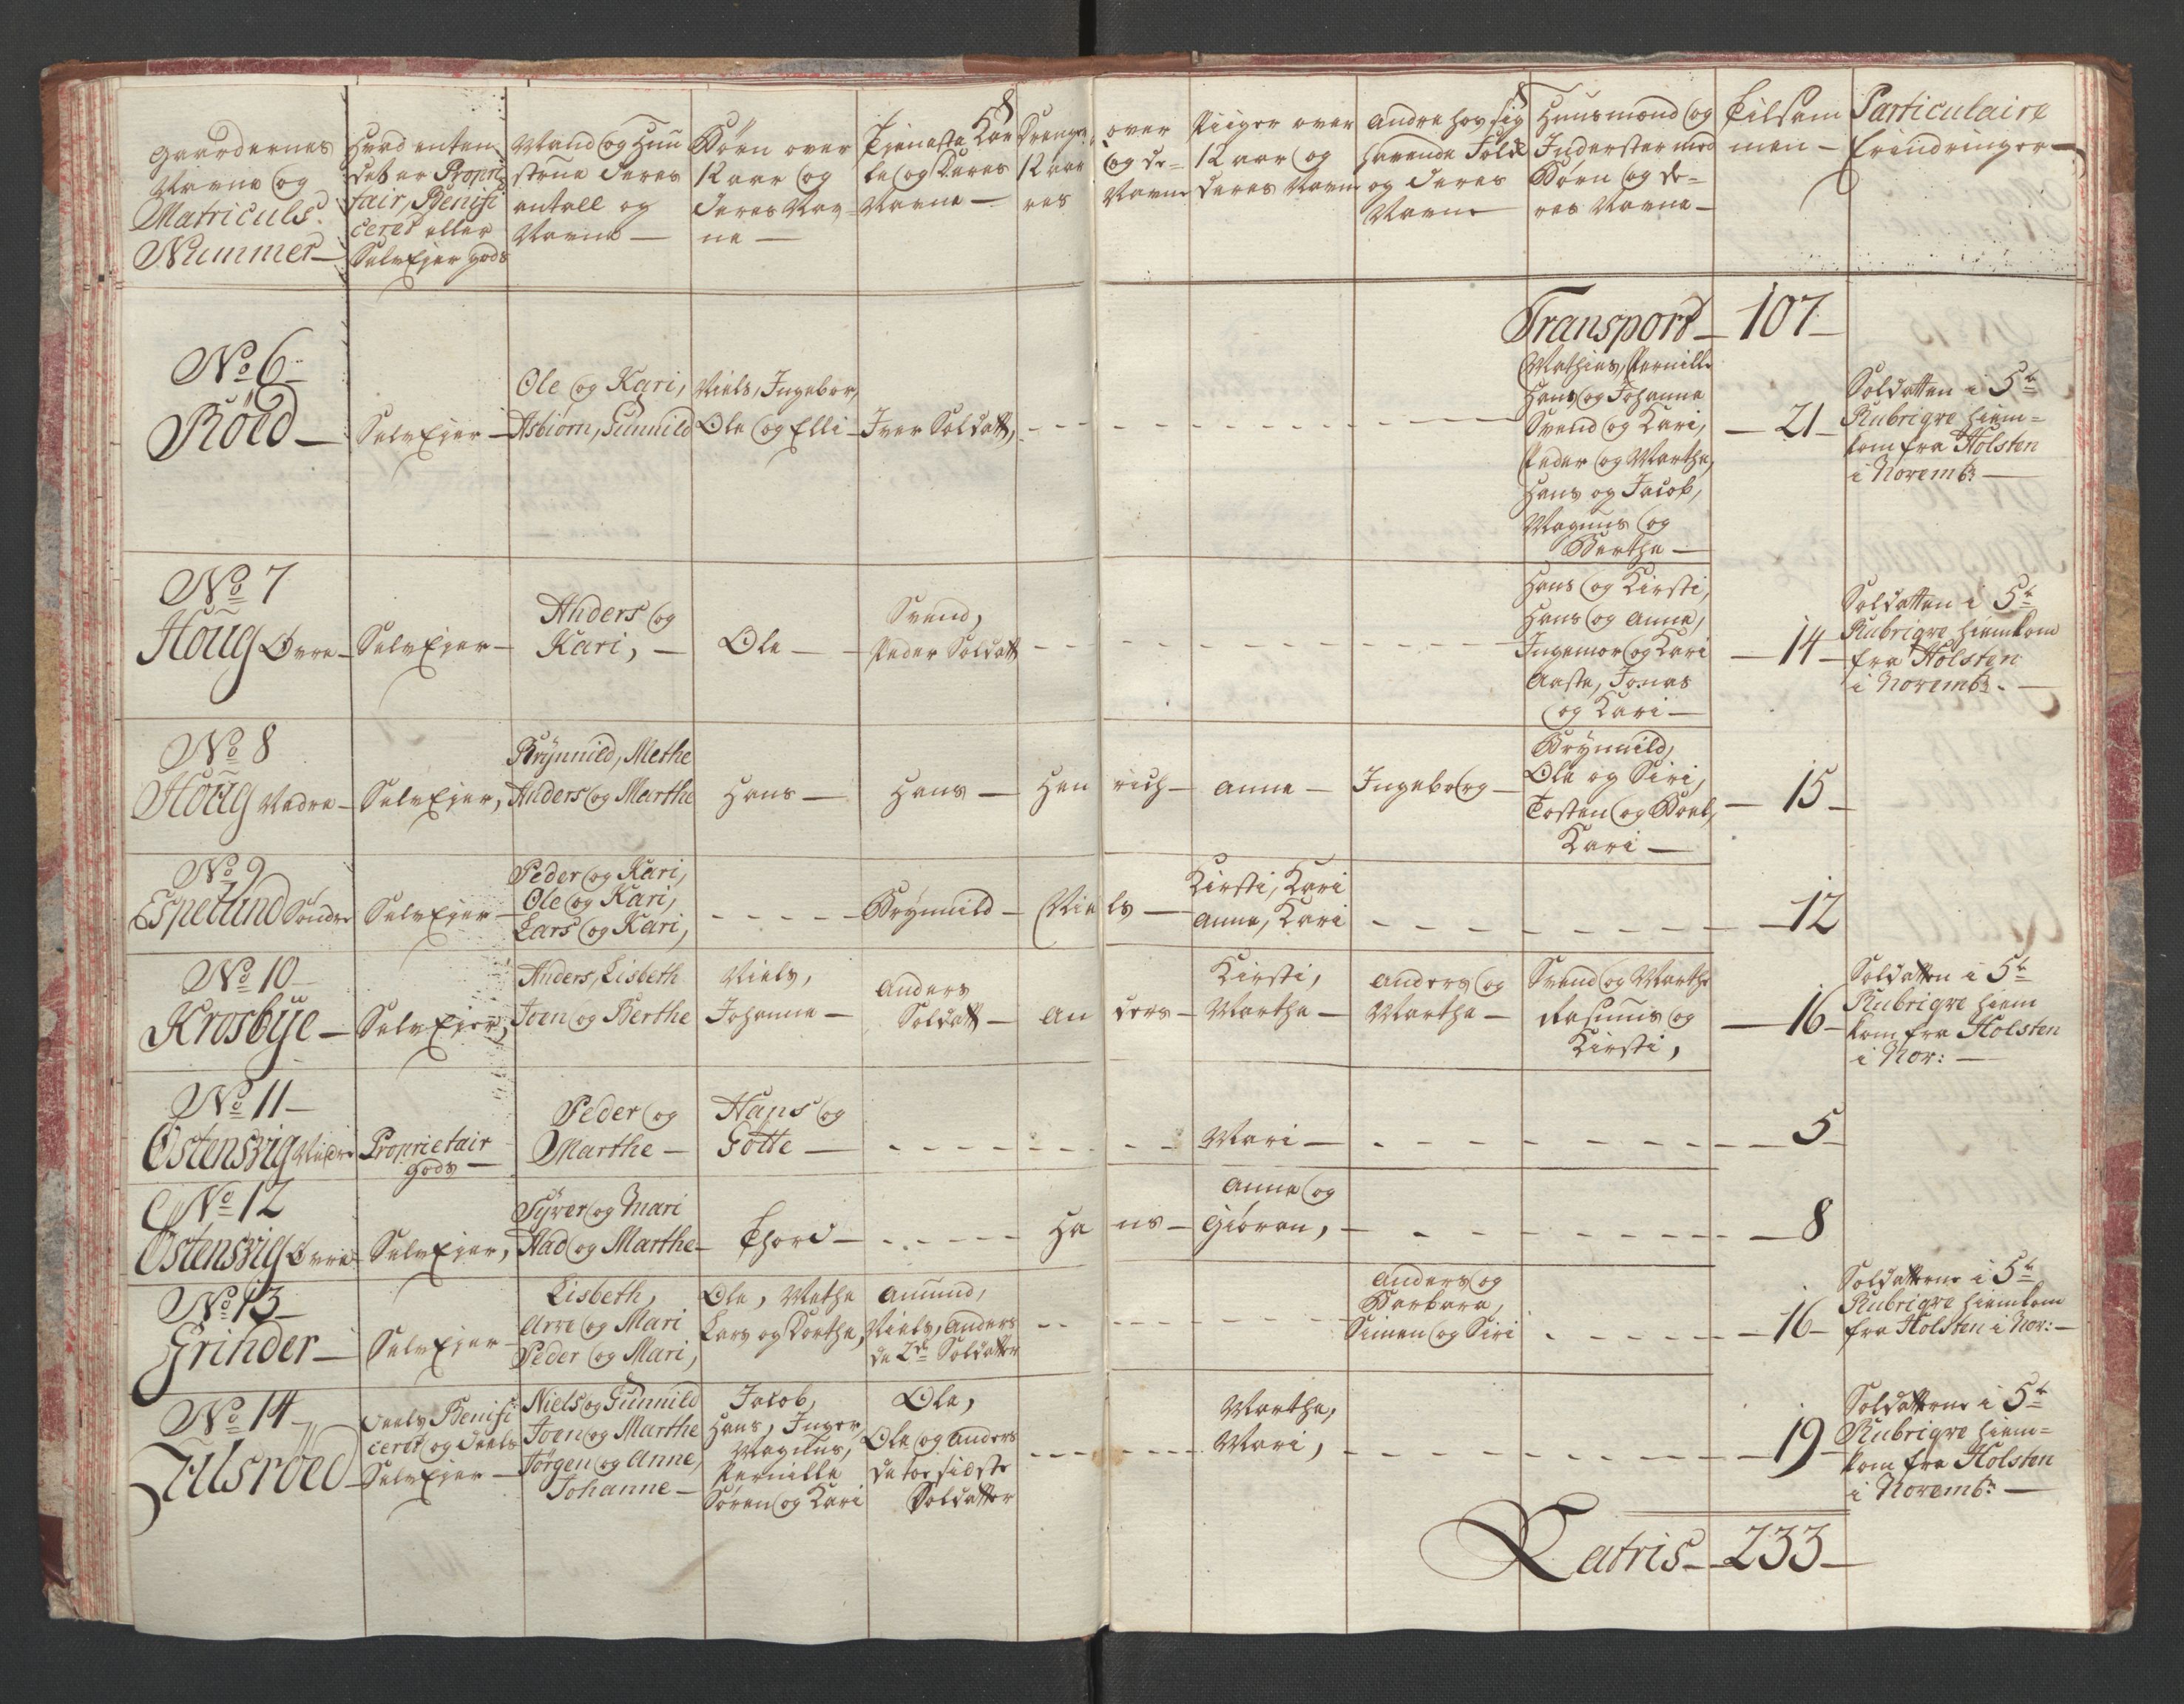 Gaardernes
Navne og
Matriculs
Nummer
Hvad enten
det er Propri
tair, Benifi
ceret eller
SelvEjer Gods
Mand og Hu
strue deres
antall og
Navne
Børn over
12 aar og
deres Nav-
ne
Tjeneste Kar
le og deres
Navne
Drenge over
12 aar og de-
res Navne
Piiger over
12 aar og
deres Navne
Andre hos sig
havende Folk
og deres
Navne
Huusmænd og
Inderster med
Børn og de-
res Navne
Tilsam
men
Particulaire
Erindringer
Transport 107
No 6
Röed
SelvEjer
Ole og Kari,
Asbiörn, Gunnild
Niels, Ingebor,
Ole og Elli
Iver Soldatt,
Mathias, Pernille
Hans og Johanne
Svend og Kari,
Peder og Marthe,
Hans og Jacob,
Magnus og
Berthe
21
Soldatten i 5te
Rubriqve hiem-
kom fra Holsten
i Novembr
No 7
Houg Övre
SelvEjer
Anders og
Kari,
Ole
Svend,
Peder Soldatt
Hans og Kirsti,
Hans og Anne,
Ingemor og Kari
Aaste, Jonas
og Kari
14
Soldatten i 5te
Rubriqve hiemkom
fra Holsten
i Novembr.
No 8
Houg Nedre
SelvEjer,
Brÿnnild, Methe
Anders og Marthe
Hans
Hans
Henrich
Anne
Ingeborg
Brÿnnild,
Ole og Siri,
Tosten og Boel,
Kari
15
No 9
Espelund Söndre
SelvEjer
Peder og Kari,
Ole og Kari,
Lars og Kari,
Brÿnnild
Niels
Kirsti, Kari
Anne, Kari
12
No 10
Krosbÿe
SelvEjer,
Anders, Lisbeth
Joen og Berthe
Niels,
Johanne
Anders
Soldatt
Anders
Kirsti,
Marthe
Anders og
Marthe
Svend og Marthe
Rasmus og
Kirsti,
16
Soldatten i 5te
Rubriqve hiem
kom fra Holsten
i Nov:
No 11
Östensvig Nedre
Proprietair
Gods
Peder og
Marthe
Hans og
Götte
Mari
5
No 12
Östensvig Övre
SelvEjer,
Sÿver og Mari
Aad og Marthe
Thord
Hans
Anne og
Giöran,
8
No 13
Grinder
SelvEjer
Lisbeth,
Arve og Mari
Peder og Mari,
Ole, Methe
Lars og Dorthe,
Amund,
Niels, Anders
de 2de Soldatter
Anders og
Barbara,
Simen og Siri
16
Soldatterne i 5te
Rubriqve hiemkom
fra Holsten i Nov:
No 14
Julsröed
deels Benifi
ceret og deels
SelvEjer
Niels og Gunnild
Joen og Marthe
Jörgen og Anne,
Johanne
Jacob,
Hans, Inger,
Magnus,
Pernille
Sören og Kari
Ole,
Ole og Anders
de toe sidste
Soldatter
Marthe,
Mari,
19
Soldatterne i 5te
Rubriqve hiem-
kom fra Holsten
i Novembr
Latris 233